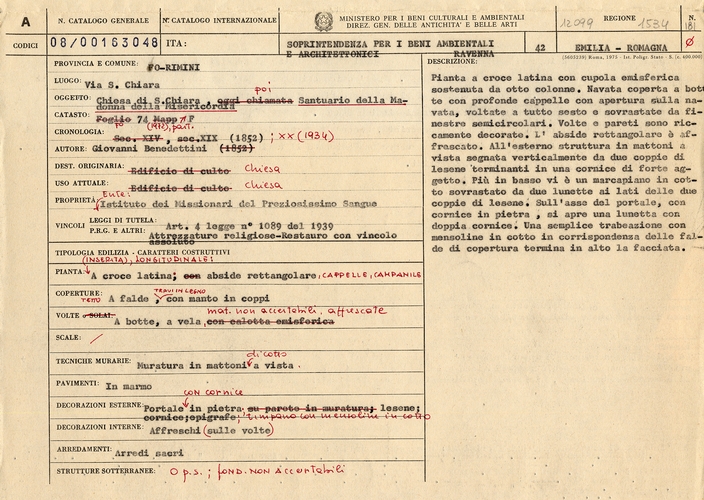 A
N. CATALOGO GENERALE
N. CATALOGO INTERNAZIONALE
MINISTERO PER I BENI CULTURALI E AMBIENTALI
DIREZ. GEN. DELLE ANTICHITA' E BELLE ARTI
12099
REGIONE
1534
N.
181
CODICI
08/00163048
ITA:
SOPRINTENDENZA PER I BENI AMBIENTALI
E ARCHITETTONICI RAVENNA
42
EMILIA - ROMAGNA
Ø
(5603239) Roma, 1975 - Ist. Poligr. Stato - S. (c. 400.000)
PROVINCIA E COMUNE: FO-RIMINI
LUOGO: Via S. Chiara
poi
OGGETTO: Chiesa di S.Chiara , oggi chiamata Santuario della Ma-
donna della Misericordia
CATASTO: Foglio 74 Mapp F
CRONOLOGIA: Sec. XIV , sec.XIX (1852) ; XX (1934)
AUTORE: Giovanni Benedettini (1852)
DEST. ORIGINARIA: Edificio di culto chiesa
USO ATTUALE: Edificio di culto chiesa
Ente:
PROPRIETÀ Istituto dei Missionari del Preziosissimo Sangue
VINCOLI
LEGGI DI TUTELA: Art. 4 legge n° 1089 del 1939
P.R.G. E ALTRI: Attrezzature religiose-Restauro con vincolo
assoluto
TIPOLOGIA EDILIZIA - CARATTERI COSTRUTTIVI
(INSERITA), LONGITUDINALE:
PIANTA: A croce latina; con abside rettangolare; CAPPELLE, CAMPANILE
TRAVI IN LEGNO
COPERTURE: TETTO A falde , con manto in coppi
mat. non accertabili, affrescate
VOLTE o SOLAI: A botte, a vela, con calotta emisferica
SCALE: /
di cotto
TECNICHE MURARIE: Muratura in mattoni a vista .
PAVIMENTI: In marmo
con cornice
DECORAZIONI ESTERNE: Portale in pietra su parete in muratura; lesene;
cornice;epigrafe; timpano con mensolini in cotto
DECORAZIONI INTERNE: Affreschi (sulle volte)
ARREDAMENTI: Arredi sacri
STRUTTURE SOTTERRANEE: O p.s. ; fond. non accertabili
DESCRIZIONE:
Pianta a croce latina con cupola emisferica
sostenuta da otto colonne. Navata coperta a bot
te con profonde cappelle con apertura sulla na-
vata, voltate a tutto sesto e sovrastate da fi-
nestre semicircolari. Volte e pareti sono ric-
camente decorate. L' abside rettangolare è af-
frescato. All'esterno struttura in mattoni a
vista segnata verticalmente da due coppie di
lesene terminanti in una cornice di forte ag-
getto. Più in basso vi è un marcapiano in cot-
to sovrastato da due lunette ai lati delle due
coppie di lesene. Sull'asse del portale, con
cornice in pietra , si apre una lunetta con
doppia cornice. Una semplice trabeazione con
mensoline in cotto in corrispondenza delle fal-
de di copertura termina in alto la facciata.